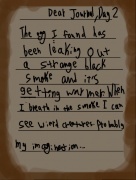 Dear Journal, Day 2
The egg I found has
been leaking out
a strange black
smoke and it's
getting warmer when
I breath in the smoke I can
see wierd creatures probably
my imagination...